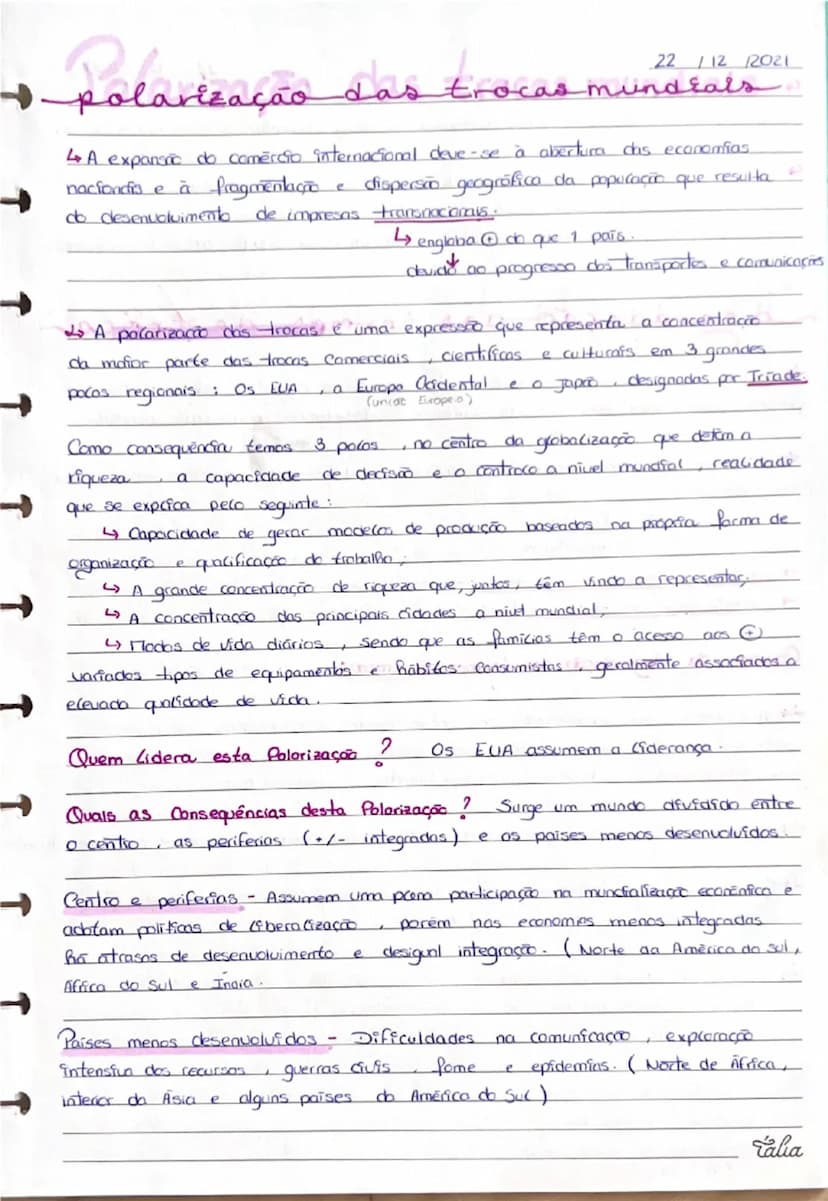 22 / 12 /2021
Polarização das trocas mundiais
polarização das trocas mundiais
↳ A expansão do comércio internacional deve-se à abertura das economias
nacionais e à fragmentação e dispersão geográfica da população que resulta
do desenvolvimento de impresas transnacionais.
↳ engloba ⊕ do que 1 país.
devido ao progresso dos transportes e comunicações
↳ A polarização das trocas é uma expressão que representa a concentração
da maior parte das trocas comerciais, científicas e culturais em 3 grandes
polos regionais : Os EUA , a Europa Ocidental e o Japão , designadas por Tríade.
(união Europeia)
Como consequência temos 3 polos , no centro da globalização que detêm a
riqueza , a capacidade de decisão e o controlo a nível mundial , realidade
que se explica pelo seguinte :
↳ Capacidade de gerar modelos de produção baseados na própria forma de
organização e qualificação do trabalho ;
↳ A grande concentração de riqueza que, juntos, têm vindo a representar;
↳ A concentração das principais cidades a nível mundial;
↳ Modos de vida diários , sendo que as famílias têm o acesso aos ⊕
variados tipos de equipamentos e hábitos consumistas , geralmente associados a
elevada qualidade de vida.
Quem lidera esta Polarização ? Os EUA assumem a liderança.
Quais as Consequências desta Polarização ? Surge um mundo dividido entre
o centro , as periferias (+/- integradas) e os países menos desenvolvidos.
Centro e periferias - Assumem uma plena participação na mundialização económica e
adotam políticas de liberalização , porém nas economes menos integradas
há atrasos de desenvolvimento e desigual integração. ( Norte da América do sul,
África do Sul e Índia.
Países menos desenvolvidos - Dificuldades na comunicação , exploração
intensiva dos recursos , guerras civis , fome e epidemias. ( Norte de África,
interior da Ásia e alguns países da América do Sul )
Tália